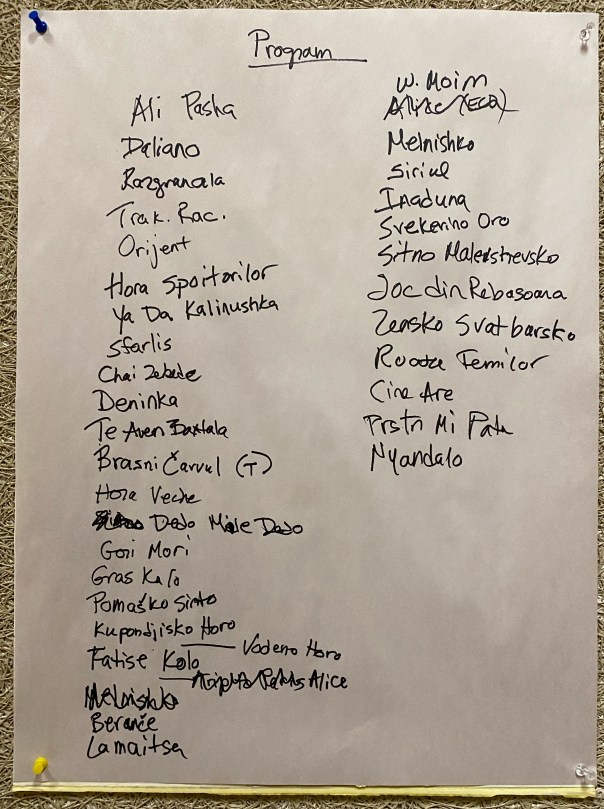 Program
Ali Pasha
Daliano
Razgranala
Trak. Rac.
Orijent
Hora Spoitorilor
Ya Da Kalinushka
Sfarlis
Chai Zebede
Deninka
Te Aven Baxtala
Brasni Čarvul (T)
Hora Veche
Dedo Mile Dedo
Gori Mori
Gras Kalo
Pomaško Sinto
Kupondjisko Horo
Vodeno Horo
Fatise Kolo
Alice
Melnishko
Beranče
Lamaitsa
W. Moim
Melnishko
Siriul
Inaduna
Svekerino Oro
Sitno Maleshevsko
Joc din Rebasoana
Zensko Svatbarsko
Roata Femilor
Cine Are
Prstn Mi Padna
Nyandalo